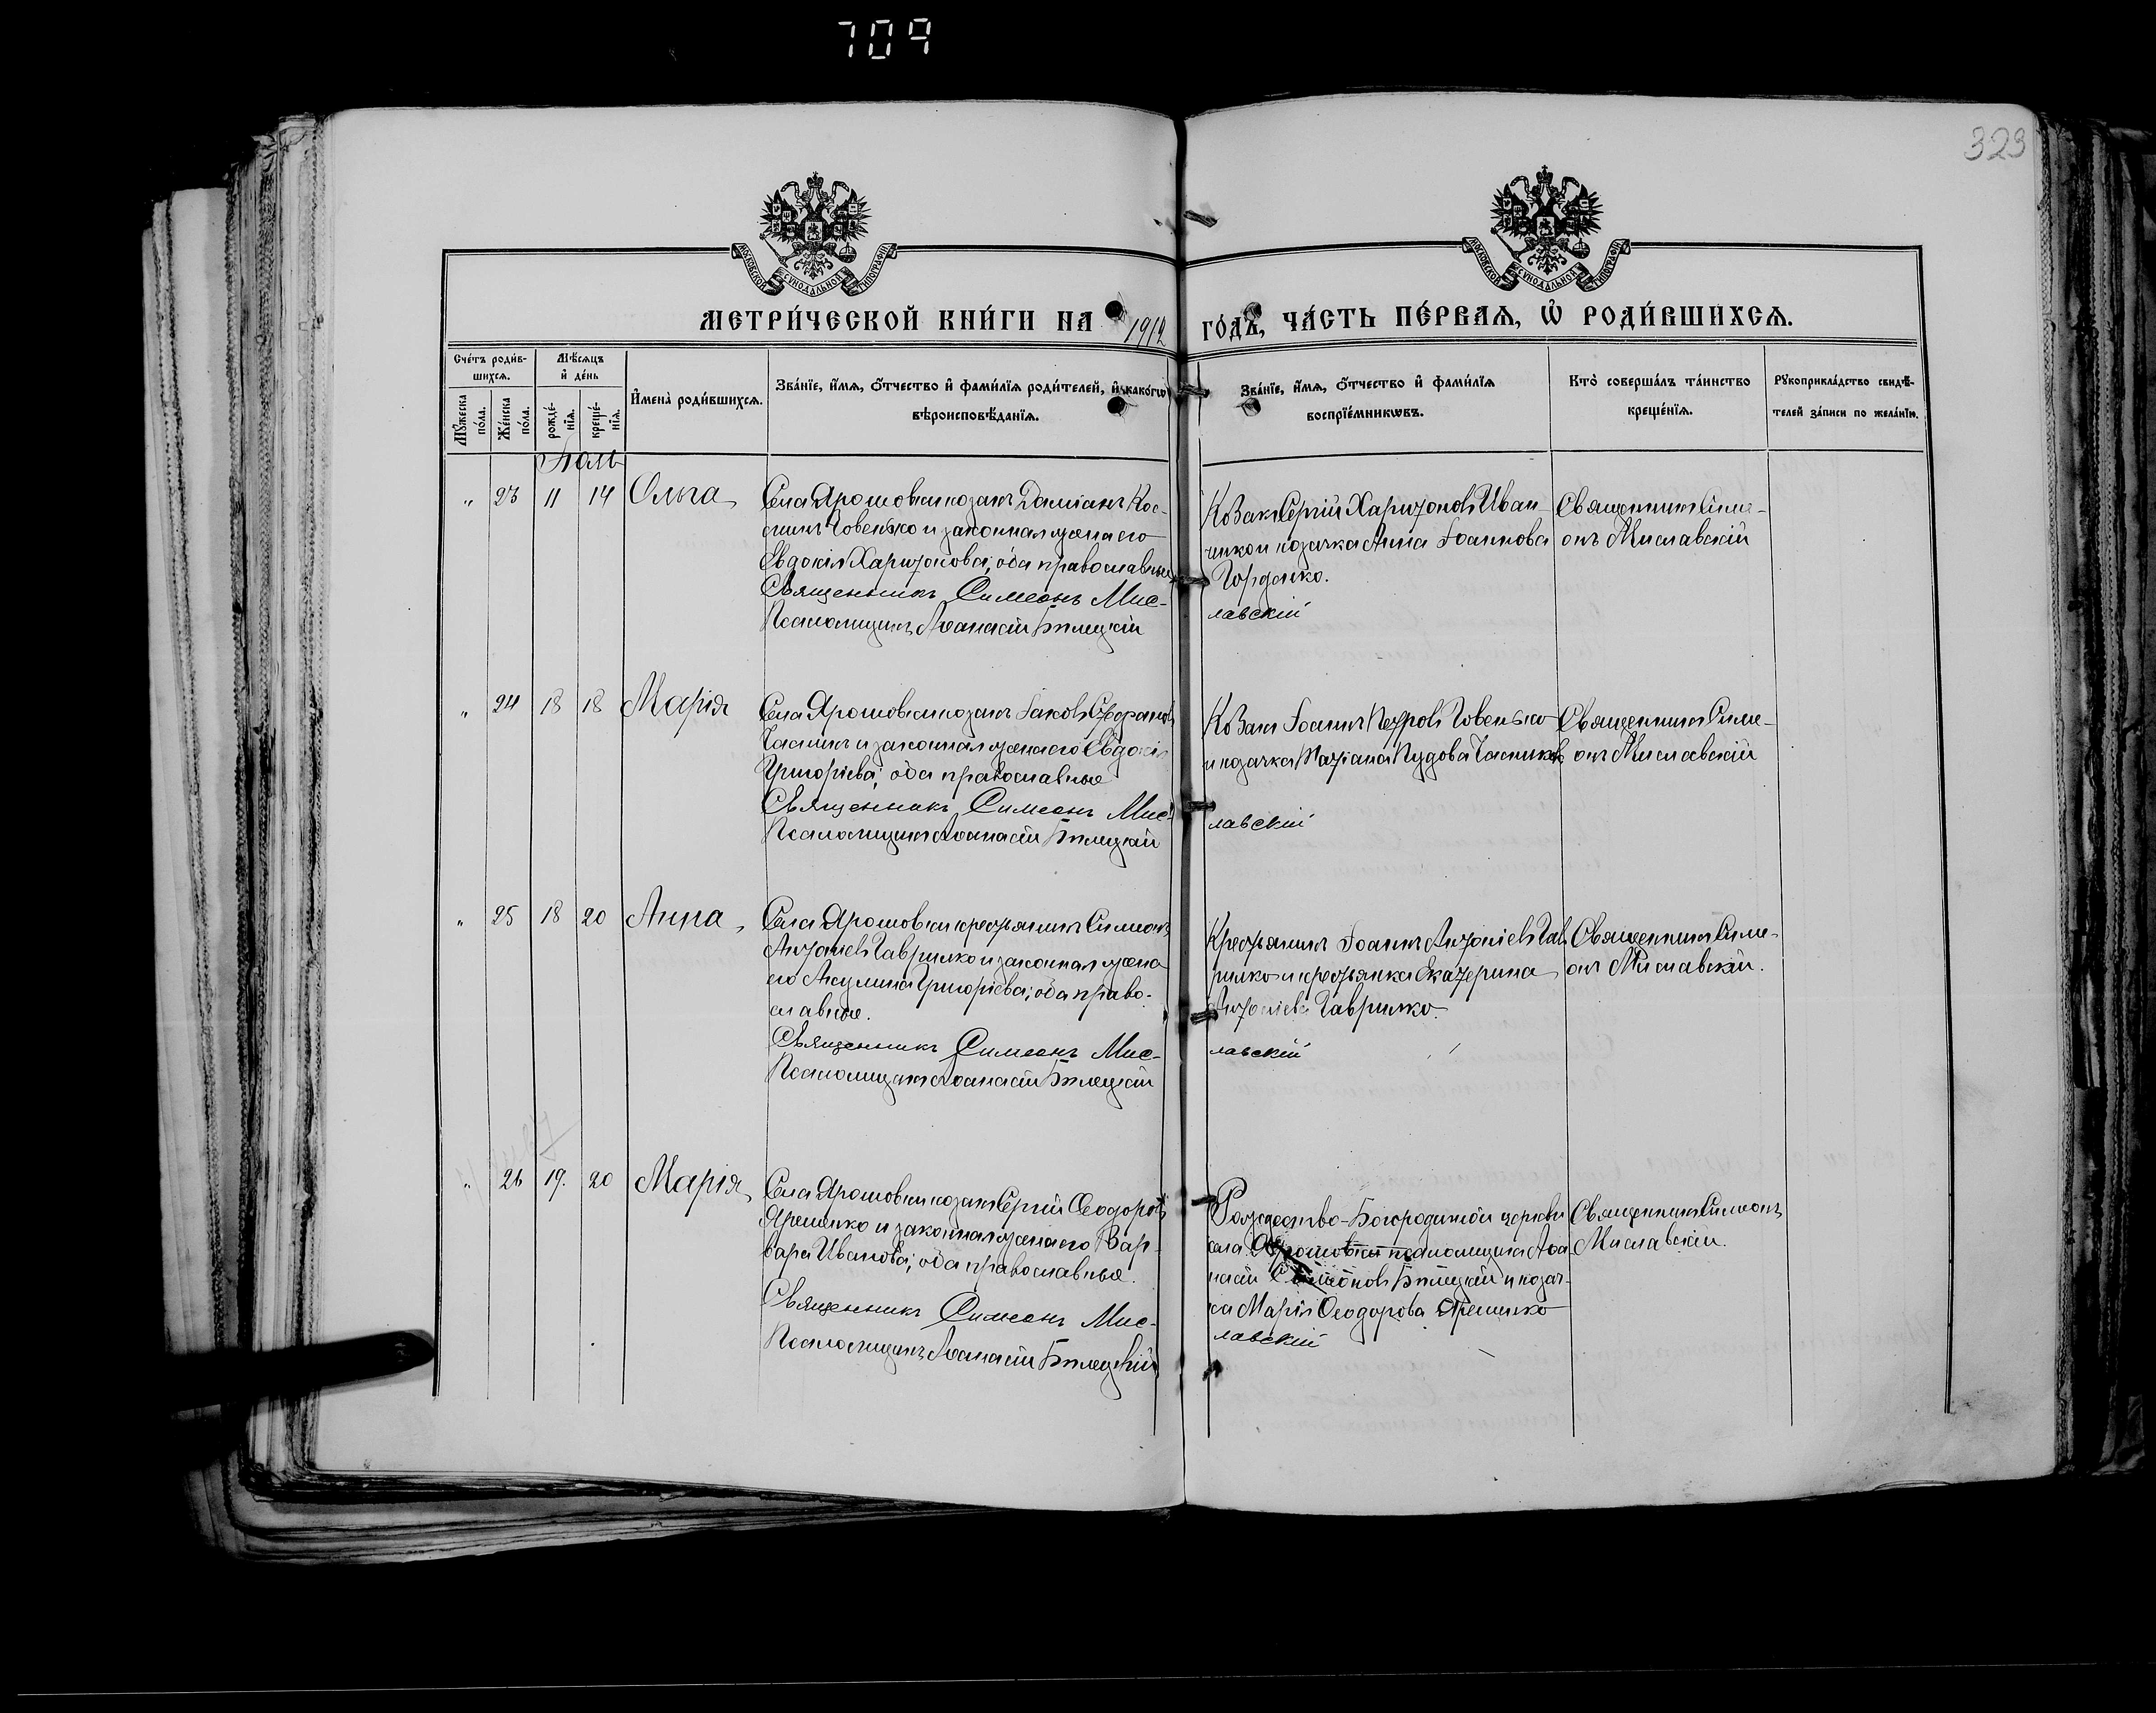 709
323
МОСКОВСКОЙ СѴНОДАЛЬНОЙ ТИПОГРАФІИ
МОСКОВСКОЙ СѴНОДАЛЬНОЙ ТИПОГРАФІИ
МЕТРИ́ЧЕСКОЙ КНИ́ГИ НА 1912 ГО́ДЪ, ЧА́СТЬ ПЕ́РВАѦ, Ѡ҆ РОДИ́ВШИХСѦ.
Сче́тъ роди́в-
шихсѧ.
Мꙋ́жеска по́ла.
Же́нска по́ла.
Мѣ́сѧцъ
и҆ де́нь
рожде́-
нїѧ.
креще́-
нїѧ.
И҆мена̀ роди́вшихсѧ.
Зва́нїе, и҆́мѧ, ѻ҆́тчество и҆ фамилїѧ роди́телей, и҆ како́гѡ
вѣроисповѣ́данїѧ.
Зва́нїе, и҆́мѧ, ѻ҆́тчество и҆ фами́лїѧ
воспрїе́мникѡвъ.
Кто̀ соверша́лъ та́инство
креще́нїѧ.
Рꙋкоприкла́дство свидѣ́-
телей за́писи по жела́нїю.
Іюль
" 23 11 14 Ольга
Села Ярошовки козакъ Даміанъ Кос-
минъ Говенько и законная жена его
Евдокія Харитонова; оба православные
Священникъ Симеонъ Мис-
Псаломщикъ Аѳанасій Билецкій
Козакъ Сергій Харитоновъ Иван-
ченко и козачка Анна Іоаннова
Гордѣнко.
лавскій
Священникъ Симе-
онъ Миславскій
" 24 18 18 Марія
Села Ярошовки козакъ Іаковъ Стефановъ
Часникъ и законная жена его Евдокія
Григоріева; оба православные
Священникъ Симеонъ Мис-
Псаломщикъ Аѳанасій Билецкій
Козакъ Іоаннъ Петровъ Говенько
и козачка Татіана Пудова Часникъ
лавскій
Священникъ Симе-
онъ Миславскій
" 25 18 20 Анна
Села Ярошовки крестьянинъ Симеонъ
Антоніевъ Гаврилко и законная жена
его Акулина Григоріева; оба право-
славные.
Священникъ Симеонъ Мис-
Псаломщикъ Аѳанасій Билецкій
Крестьянинъ Іоаннъ Антоніевъ Гав-
рилко и крестьянка Екатерина
Антоніева Гаврилко.
лавскій
Священникъ Симе-
онъ Миславскій.
" 26 19. 20 Марія
Села Ярошовки козакъ Сергій Ѳеодоровъ
Яременко и законная жена его Вар-
вара Иванова; оба православные.
Священникъ Симеонъ Мис-
Псаломщикъ Аѳанасій Билецкій
Рождество-Богородичной церкви
села Ярошовки псаломщикъ Аѳа-
насій Билецкій и козач-
ка Марія Ѳеодорова Яременко
лавскій
Священникъ Симеонъ
Миславскій.